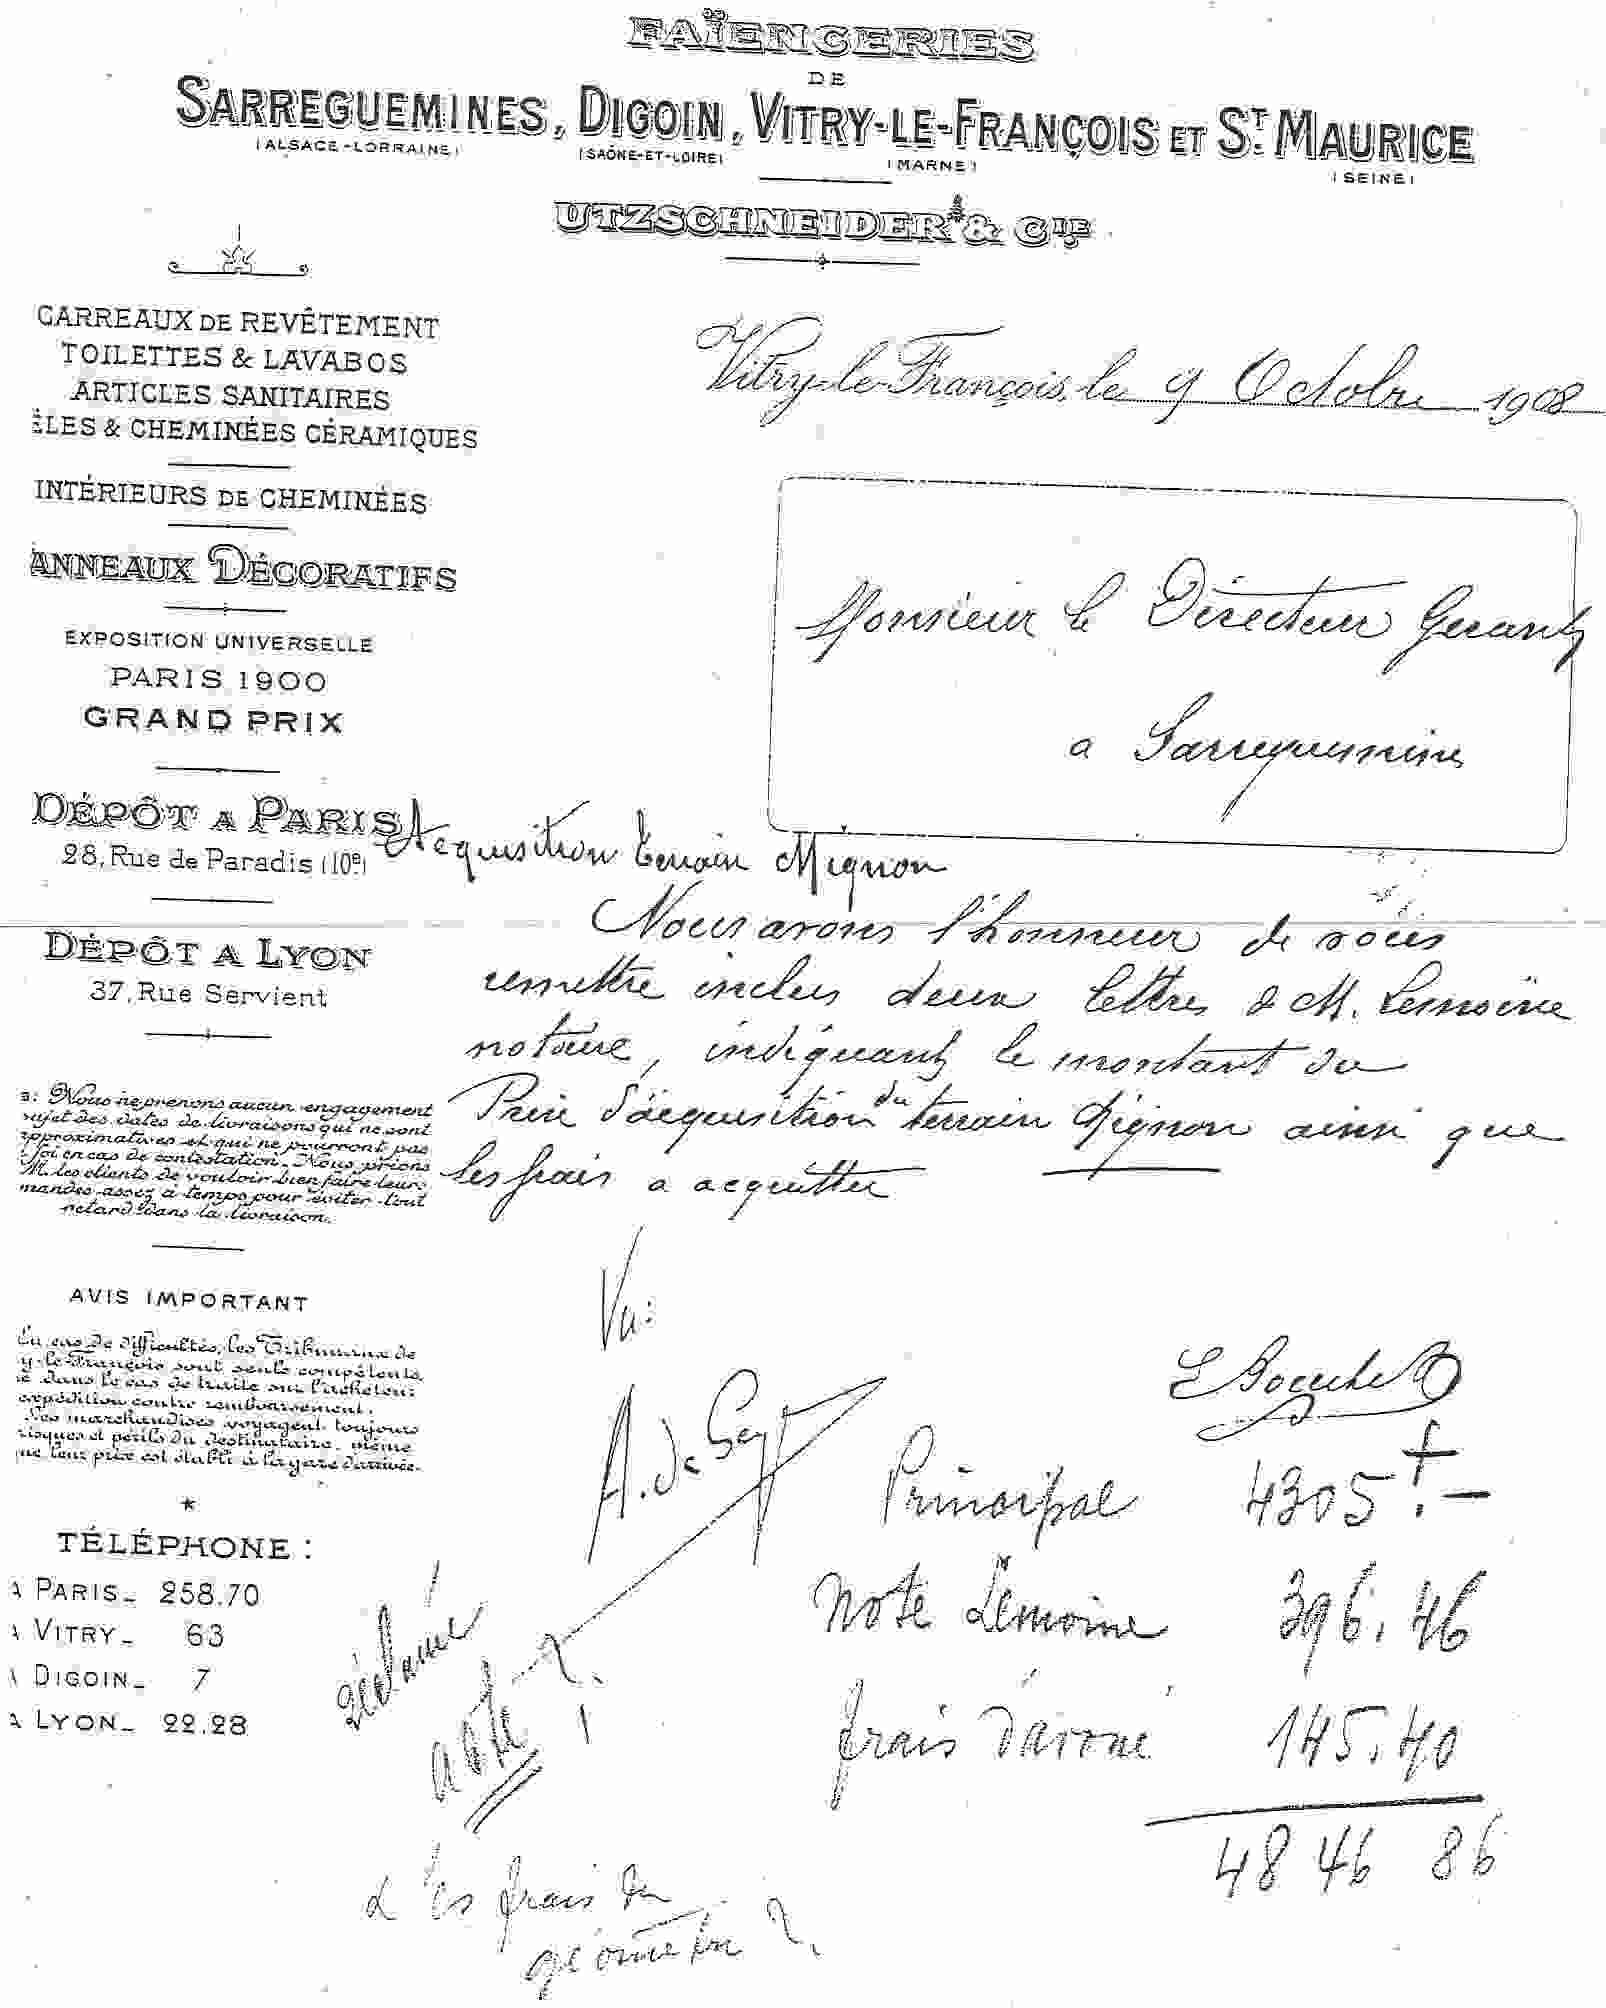 FAÏENCERIES
DE
SARREGUEMINES, DIGOIN, VITRY-LE-FRANÇOIS ET ST MAURICE
(ALSACE-LORRAINE) (SAÔNE-ET-LOIRE) (MARNE) (SEINE)
UTZSCHNEIDER & CIE
CARREAUX DE REVÊTEMENT
TOILETTES & LAVABOS
ARTICLES SANITAIRES
ÊLES & CHEMINÉES CÉRAMIQUES
INTÉRIEURS DE CHEMINÉES
ANNEAUX DÉCORATIFS
EXPOSITION UNIVERSELLE
PARIS 1900
GRAND PRIX
DÉPÔT A PARIS
28, Rue de Paradis (10e)
DÉPÔT A LYON
37, Rue Servient
Nous ne prenons aucun engagement
sujet des dates de livraisons qui ne sont
approximatives et qui ne pourront pas
foi en cas de contestation. Nous prions
M. les clients de vouloir bien faire leurs
mandes assez à temps pour éviter tout
retard dans la livraison.
AVIS IMPORTANT
En cas de difficultés, les Tribunaux de
y-le-François sont seuls compétents,
e dans le cas de traite sur l'acheteur:
expédition contre remboursement.
Nos marchandises voyagent toujours
risques et périls du destinataire, même
que leur prix est établi à la gare d'arrivée.
*
TÉLÉPHONE :
A PARIS_ 258.70
A VITRY_ 63
A DIGOIN_ 7
A LYON_ 22.28
Vitry-le-François, le 9 Octobre 1908
Monsieur le Directeur Gerant
a Sarreguemines
Acquisition terrain Mignon
Nous avons l'honneur de vous
remettre inclus deux lettres de M. Lemoine
notaire, indiquant le montant du
Prix d'acquisition du terrain Mignon ainsi que
les frais a acquitter
Vu:
A. de Gey
Principal 4305 f.-
Note Lemoine 396.46
frais d'avoué 145.40
4846 86
réclamé
note ?
& les frais du
géomètre ?